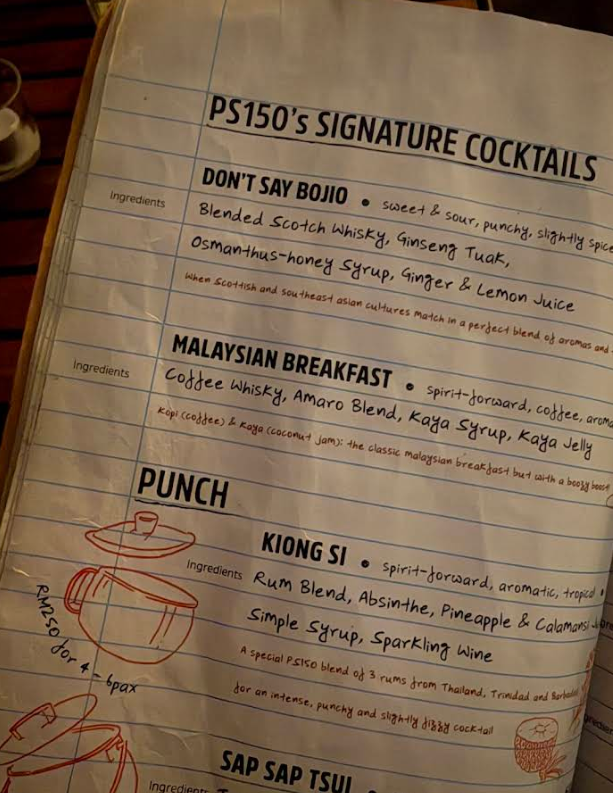 PS150's SIGNATURE COCKTAILS
DON'T SAY BOJIO • sweet & sour, punchy, slightly spice
Ingredients Blended Scotch Whisky, Ginseng Tuak,
Osmanthus-honey Syrup, Ginger & Lemon Juice
When Scottish and southeast asian cultures match in a perfect blend of aromas and
MALAYSIAN BREAKFAST • spirit-forward, coffee, aroma
Ingredients Coffee Whisky, Amaro Blend, Kaya Syrup, Kaya Jelly
Kopi (coffee) & Kaya (coconut jam): the classic malaysian breakfast but with a boozy boost
PUNCH
KIONG SI • spirit-forward, aromatic, tropical
Ingredients Rum Blend, Absinthe, Pineapple & Calamansi
Simple Syrup, Sparkling Wine
A special PS150 blend of 3 rums from Thailand, Trinidad and Barbados
for an intense, punchy and slightly fizzy cocktail
RM250 for 4-6pax
SAP SAP TSUI
Ingredients